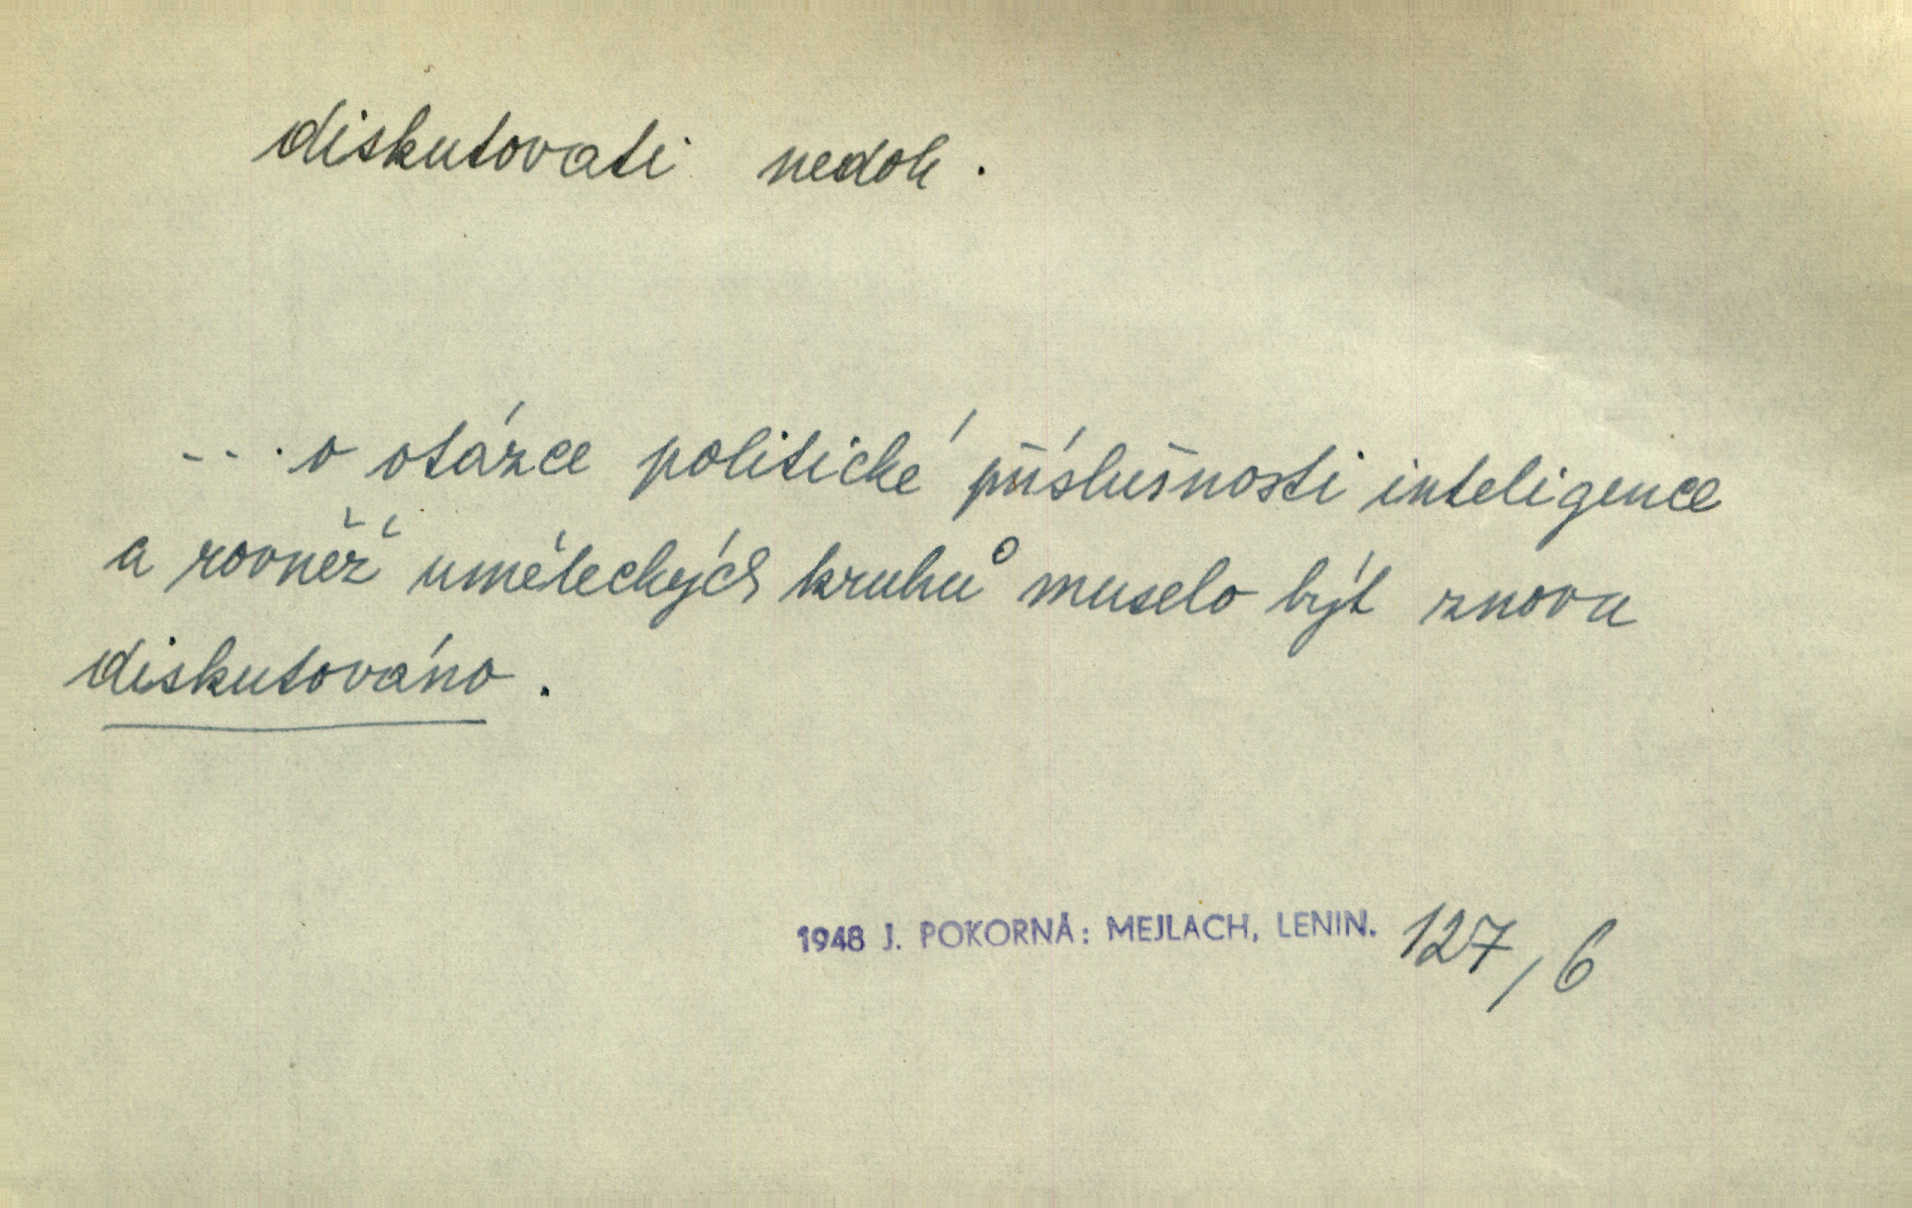 diskutovati nedok.
... o otázce politické příslušnosti inteligence
a rovněž uměleckých kruhů muselo být znova
diskutováno.
1948 J. POKORNÁ: MEJLACH, LENIN. 127, 6